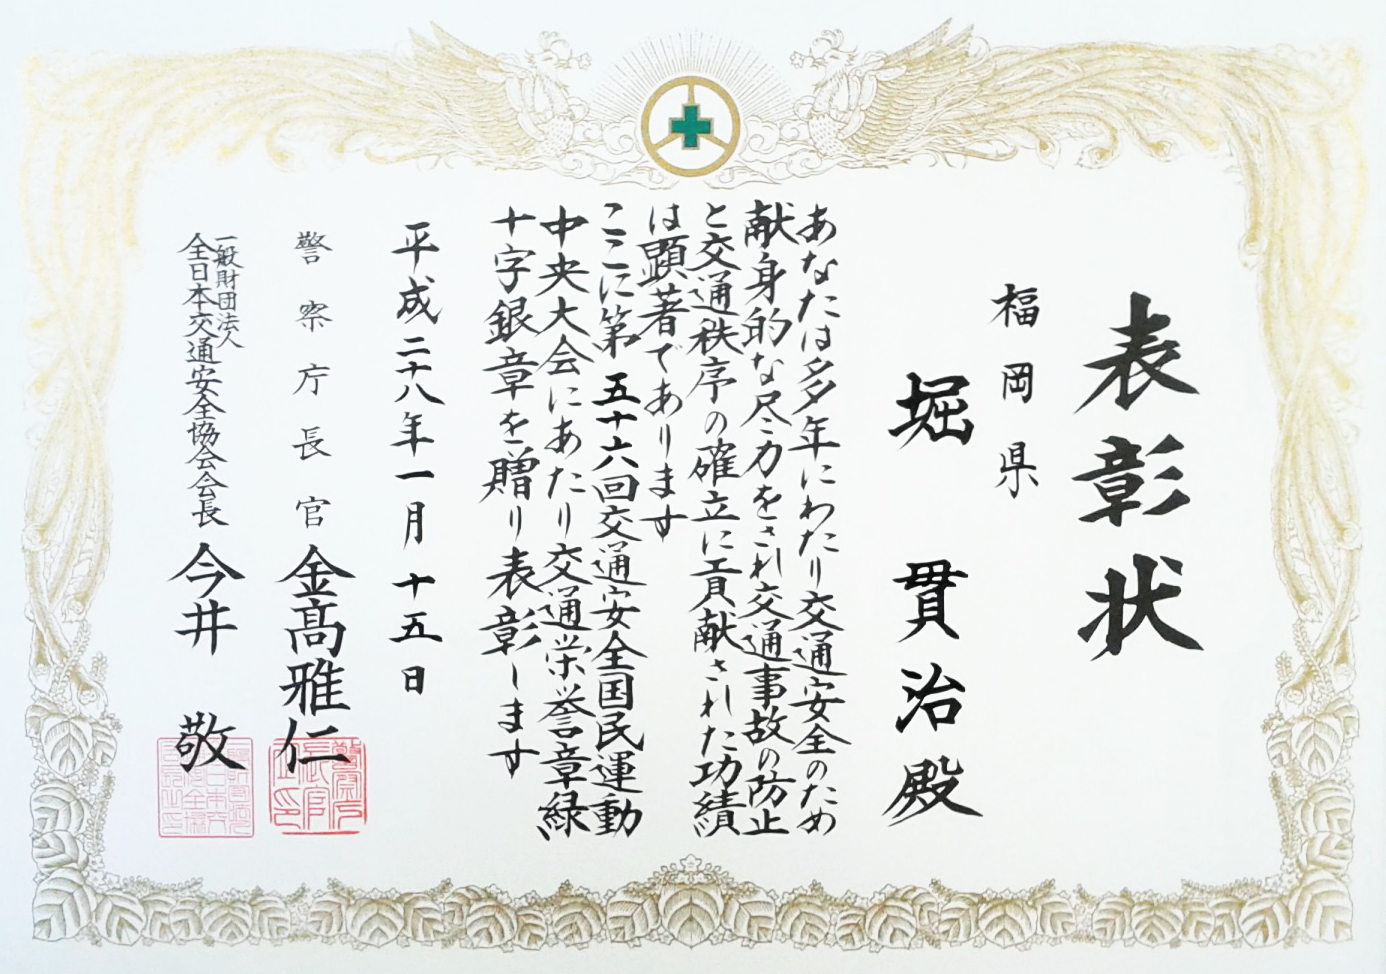 表彰状
福岡県
堀 貫治殿
あなたは多年にわたり交通安全のため
献身的な尽力をされ交通事故の防止
と交通秩序の確立に貢献された功績
は顕著であります
ここに第五十六回交通安全国民運動
中央大会にあたり交通栄誉章緑
十字銀章を贈り表彰します
平成二十八年一月十五日
警察庁長官 金高雅仁
一般財団法人
全日本交通安全協会会長 今井 敬